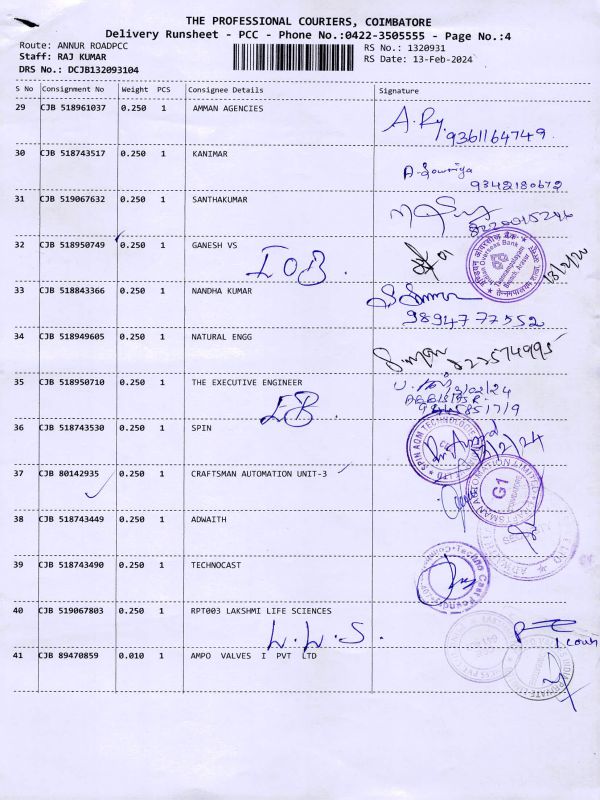 THE PROFESSIONAL COURIERS, COIMBATORE
Delivery Runsheet - PCC - Phone No.:0422-3505555 - Page No.:4
Route: ANNUR ROADPCC RS No.: 1320931
Staff: RAJ KUMAR RS Date: 13-Feb-2024
DRS No.: DCJB132093104
S No Consignment No Weight PCS Consignee Details Signature
29 CJB 518961037 0.250 1 AMMAN AGENCIES
9361164749
30 CJB 518743517 0.250 1 KANIMAR
9342180672
31 CJB 519067632 0.250 1 SANTHAKUMAR
32 CJB 518950749 0.250 1 GANESH VS
IOB.
33 CJB 518843366 0.250 1 NANDHA KUMAR
9894777552
34 CJB 518949605 0.250 1 NATURAL ENGG
35 CJB 518950710 0.250 1 THE EXECUTIVE ENGINEER
13/02/24
EB.
36 CJB 518743530 0.250 1 SPIN
37 CJB 80142935 0.250 1 CRAFTSMAN AUTOMATION UNIT-3
G1
38 CJB 518743449 0.250 1 ADWAITH
39 CJB 518743490 0.250 1 TECHNOCAST
40 CJB 519067803 0.250 1 RPT003 LAKSHMI LIFE SCIENCES
L.L.S.
41 CJB 89470859 0.010 1 AMPO VALVES I PVT LTD